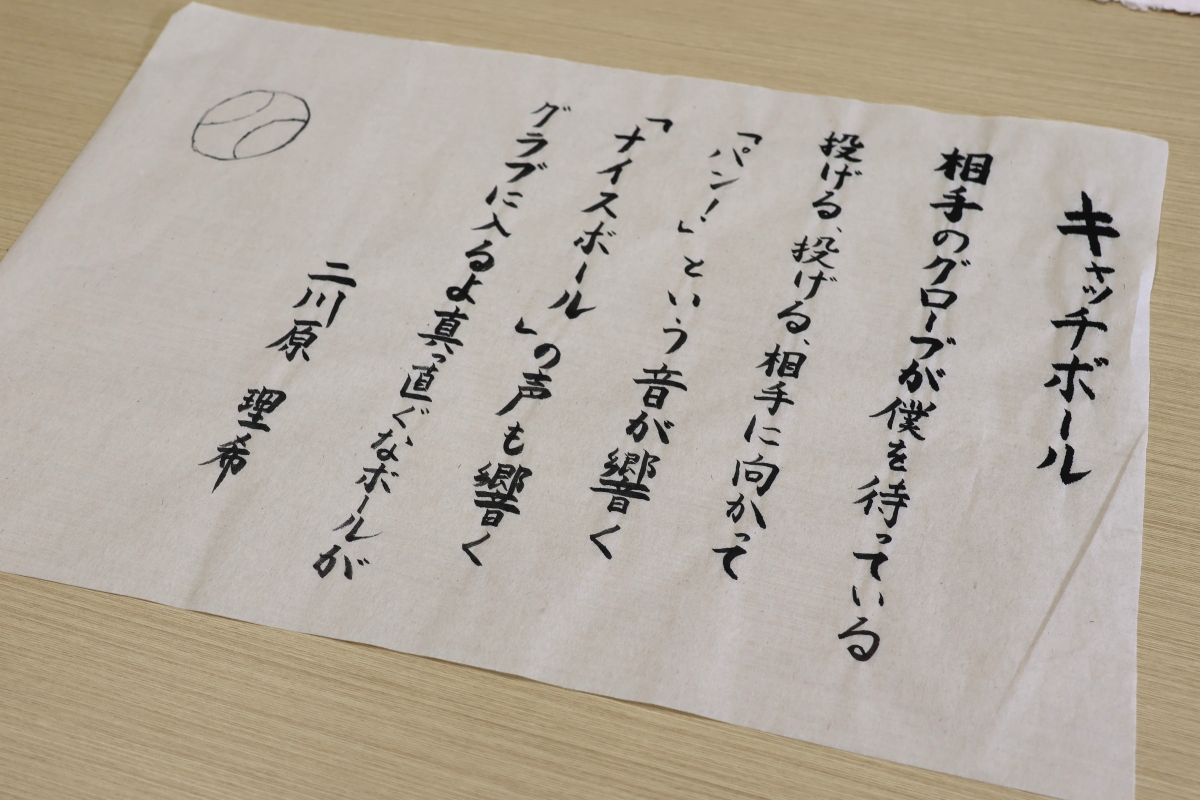 キャッチボール
相手のグローブが僕を待っている
投げる、投げる、相手に向かって
「パン！」という音が響く
「ナイスボール」の声も響く
グラブに入るよ真っ直ぐなボールが
二川原 理希